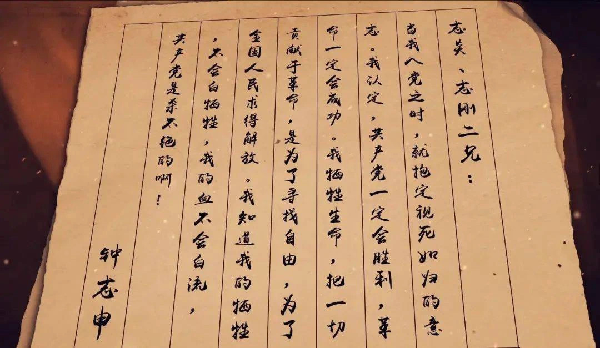 志炎、志刚二兄：
当我入党之时，就抱定视死如归的意
志。我认定，共产党一定会胜利，革
命一定会成功。我牺牲生命，把一切
贡献于革命，是为了寻找自由，为了
全国人民求得解放。我知道我的牺牲
，不会白牺牲，我的血不会白流，
共产党是杀不绝的啊！
钟志申